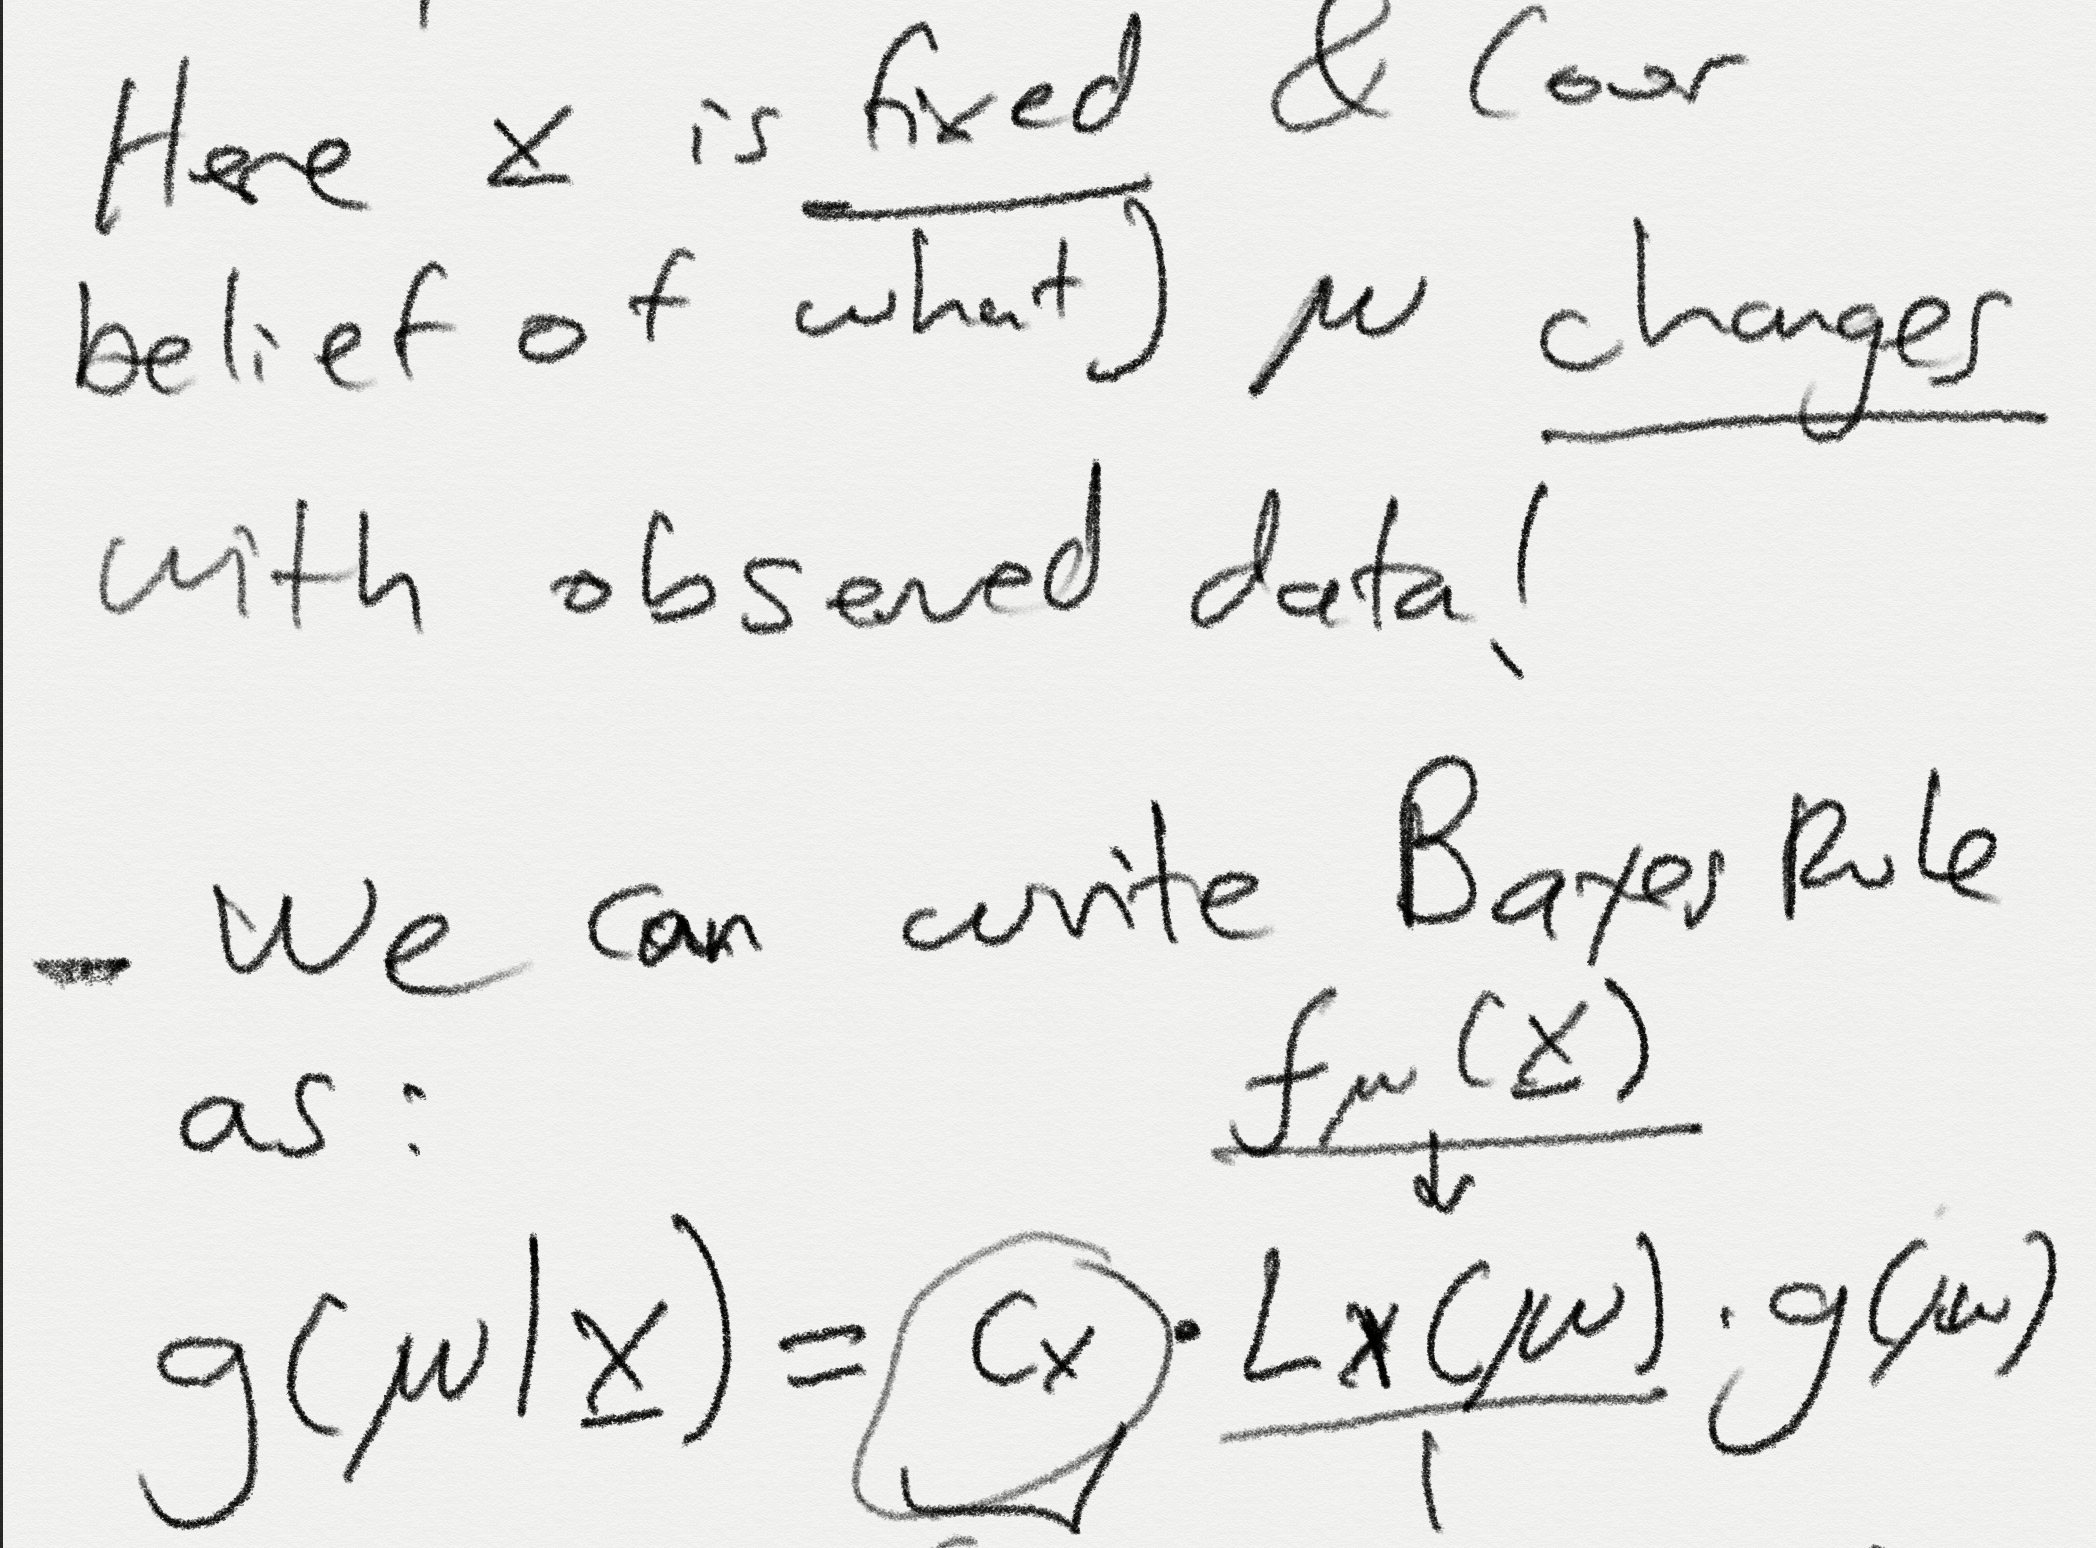 Here x is fixed & (our
belief of what) μ changes
with observed data!
- We can write Bayes Rule
as:
fμ(x)
↓
g(μ|x) = Cx · Lx(μ) · g(μ)